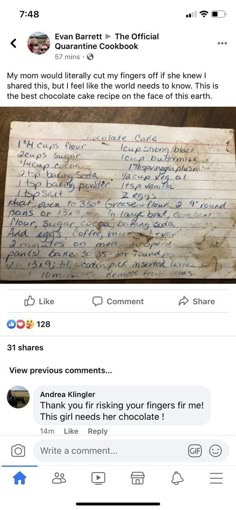 7:48
Evan Barrett ▸ The Official
Quarantine Cookbook
57 mins
My mom would literally cut my fingers off if she knew I
shared this, but I feel like the world needs to know. This is
the best chocolate cake recipe on the face of this earth.
Chocolate Cake
1 3/4 cups flour 1 cup strong black
2 cups sugar 1 cup buttermilk
3/4 cup cocoa
2 tsp baking soda 1/2 cup veg oil
1 tsp baking powder 1 tsp vanilla
1 tsp Salt 2 eggs
Heat oven to 350° Grease & flour 2 9" round
pans or 13x9 in large bowl, combine
flour, sugar cocoa, baking soda
Add eggs, coffee,
2 minutes on med speed
pan(s) bake 30 35 for rounds
13x9; til wooden pick inserted
10 min Remove from
Like
Comment
Share
128
31 shares
View previous comments...
Andrea Klingler
Thank you fir risking your fingers fir me!
This girl needs her chocolate !
14m Like Reply
Write a comment...
GIF